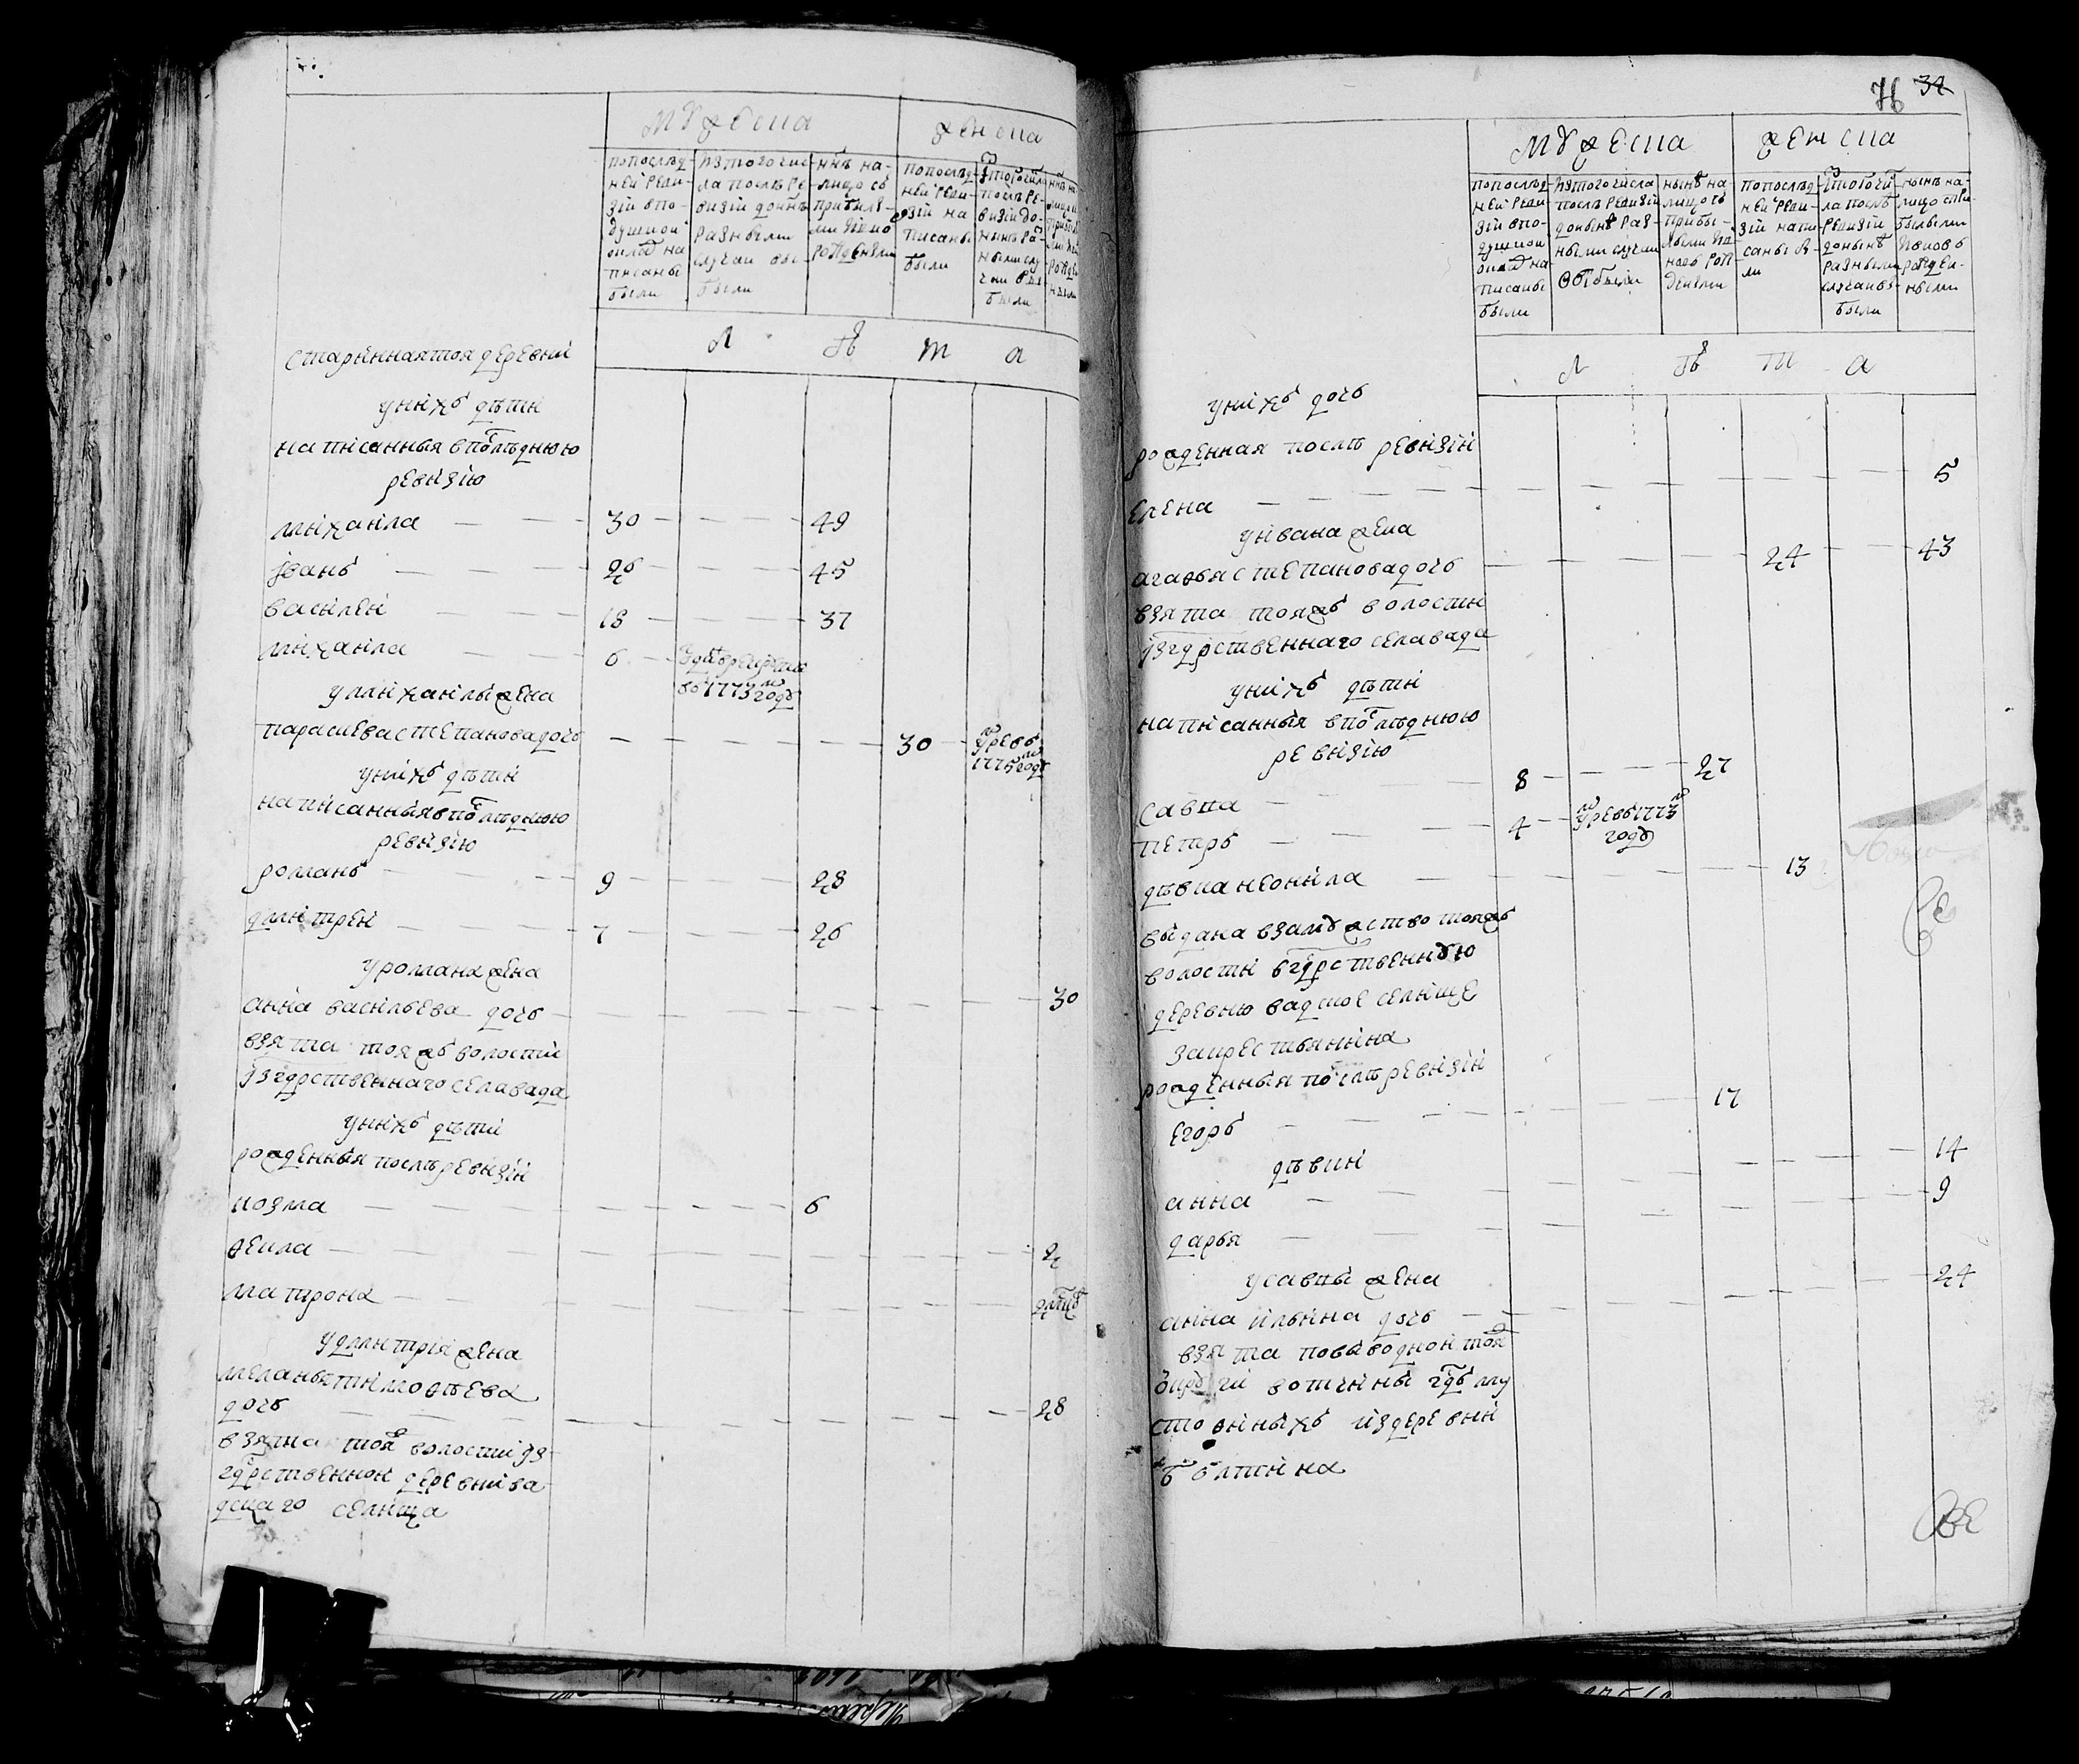 мужеска
женска
попослѣд-
ней реви-
зіи впо-
душной
оклад на-
писаны
были
изтого чис-
ла послѣ ре-
визіи донынѣ
разными
случаи вы-
были
ннѣ на-
лицо съ
прибылы-
ми
рожденыи
попослѣд-
ней реви-
зіи на
писаны
были
послѣ ре-
визіи до-
нынѣ ра-
зными слу-
чаи вы-
были
л ѣ т а
старинная тоя деревни
унихъ дѣти
написанныя впослѣднюю
ревизію
михаила 30 49
іванъ 26 45
василей 18 37
михаила 6
въ 1773 м годѣ
умихайлы жена
парасковья степанова дочь 30 умре въ
1775 м годѣ
унихъ дѣти
написанныя впослѣднюю
ревизію
романъ 9 28
дмитрей 7 26
уромана жена
анна васильева дочь 30
взята тояжъ волости
ізгдрственнаго села вада
унихъ дѣти
рожденныя послѣ ревизіи
козма 6
ѳекла 2
матрона
удмитрія жена
меланья тимоѳѣева
дочь 28
взята тояж волости із-
гдрственной деревни ва-
дскаго селища
76 34
мужеска
женска
попослѣд-
ней реви-
зіи впо-
душной
оклад на-
писаны
были
изтого числа
послѣ ревизіи
донынѣ раз-
ными случаи
выбыли
нынѣ на-
лицо съ
прибы-
лыми
рож-
деными
попослѣд-
ней реви-
зіи напи-
саны бы-
ли
изтого чи-
ла послѣ
ревизіи
донынѣ
разными
случаи вы-
были
нынѣ на-
лицо спри-
былыми
ивновь
рожден-
ными
л ѣ т а
унихъ дочь
рожденная послѣ ревизіи
елена 5
уивана жена
агаѳья степанова дочь 24 43
взята тояжъ волости
ізгдрственнаго села вада
унихъ дѣти
написанныя впослѣднюю
ревизію
савка 8 27
петръ 4 умре въ 1773 м
годѣ
дѣвка неонила 13
выдана взамужство тояжъ
волости вгдрственную
деревню вадское селище
закрестьянина
рожденныя послѣ ревизіи
егоръ 17
дѣвки
анна 14
дарья 9
усавки жена
анна ильина дочь 24
взята повыводной тояж
округи вотчины гдѣ му
стоѳиныхъ издеревни